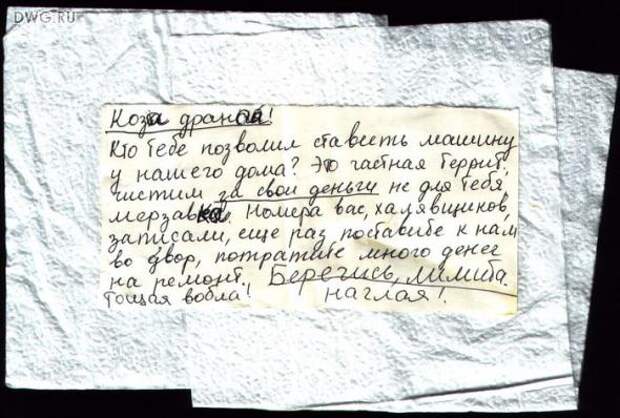 DWG.RU
Коза драная!
Кто тебе позволил ставить машину
у нашего дома? Это частная террит.,
чистим за свои деньги не для тебя,
мерзавка. Номера вас, халявщиков,
записали, еще раз поставите к нам
во двор, потратите много денег
на ремонт. Берегись, лимита
тощая вобла! наглая!